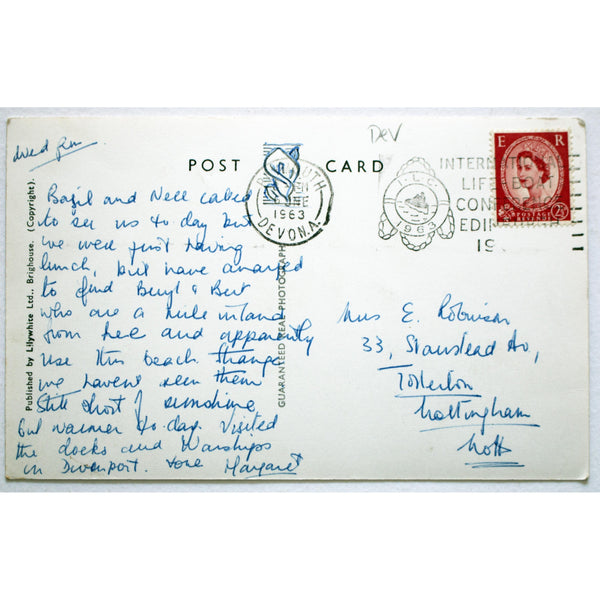 Dev
POST CARD
Published by Lilywhite Ltd., Brighouse. (Copyright).
GUARANTEED REAL PHOTOGRAPH
1963
DEVON.A.
I.L.C.
1963
INTERNAT
LIFEBOAT
CON
EDINBURGH
19
E R
POSTAGE
2½D
Bazil and Nell called
to see us to day but
we were just having
lunch, but have arranged
to find Beryl & Bert
who are a mile inland
from here and apparently
use this beach though
we havent seen them
Still short of sunshine
but warmer to-day. Visited
the docks and Warships
in Divenport. Love Margaret
Mrs E. Robinson
33, Stanstead Av,
Tollerton
Nottingham
Notts